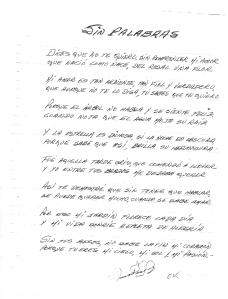 SIN PALABRAS
DICES QUE NO TE QUIERO, SIN COMPRENDER MI AMOR
QUE NACIÓ COMO NACE, DEL ROSAL UNA FLOR.
MI AMOR ES TAN ARDIENTE, TAN FIEL Y VERDADERO,
QUE AUNQUE NO TE LO DIGA, TU SABES QUE TE QUIERO
PORQUE EL ARBOL NO HABLA Y SE SIENTE FELIZ,
CUANDO NOTA QUE EL AGUA MOJA SU RAÍZ
Y LA ESTRELLA ES DICHOSA, SI LA NOCHE ES OBSCURA,
PORQUE SABE QUE ASÍ, BRILLA SU HERMOSURA
FUE AQUELLA TARDE GRIS, QUE COMENZÓ A LLOVER
Y YO ENTRE TUS BRAZOS ME DEJABA QUERER
ASÍ TE DEMOSTRÉ QUE SIN TENER QUE HABLAR,
SE PUEDE QUERER MUCHO, CUANDO SE SABE AMAR.
POR ESO MI JARDÍN FLORECE CADA DÍA
Y MI VIDA SONRÍE REPLETA DE ALEGRÍA
SIN TUS BESOS, NO SABE LATIR MI CORAZÓN
PORQUE TU ERES MI CIELO, MI SOL, Y MI PASIÓN.